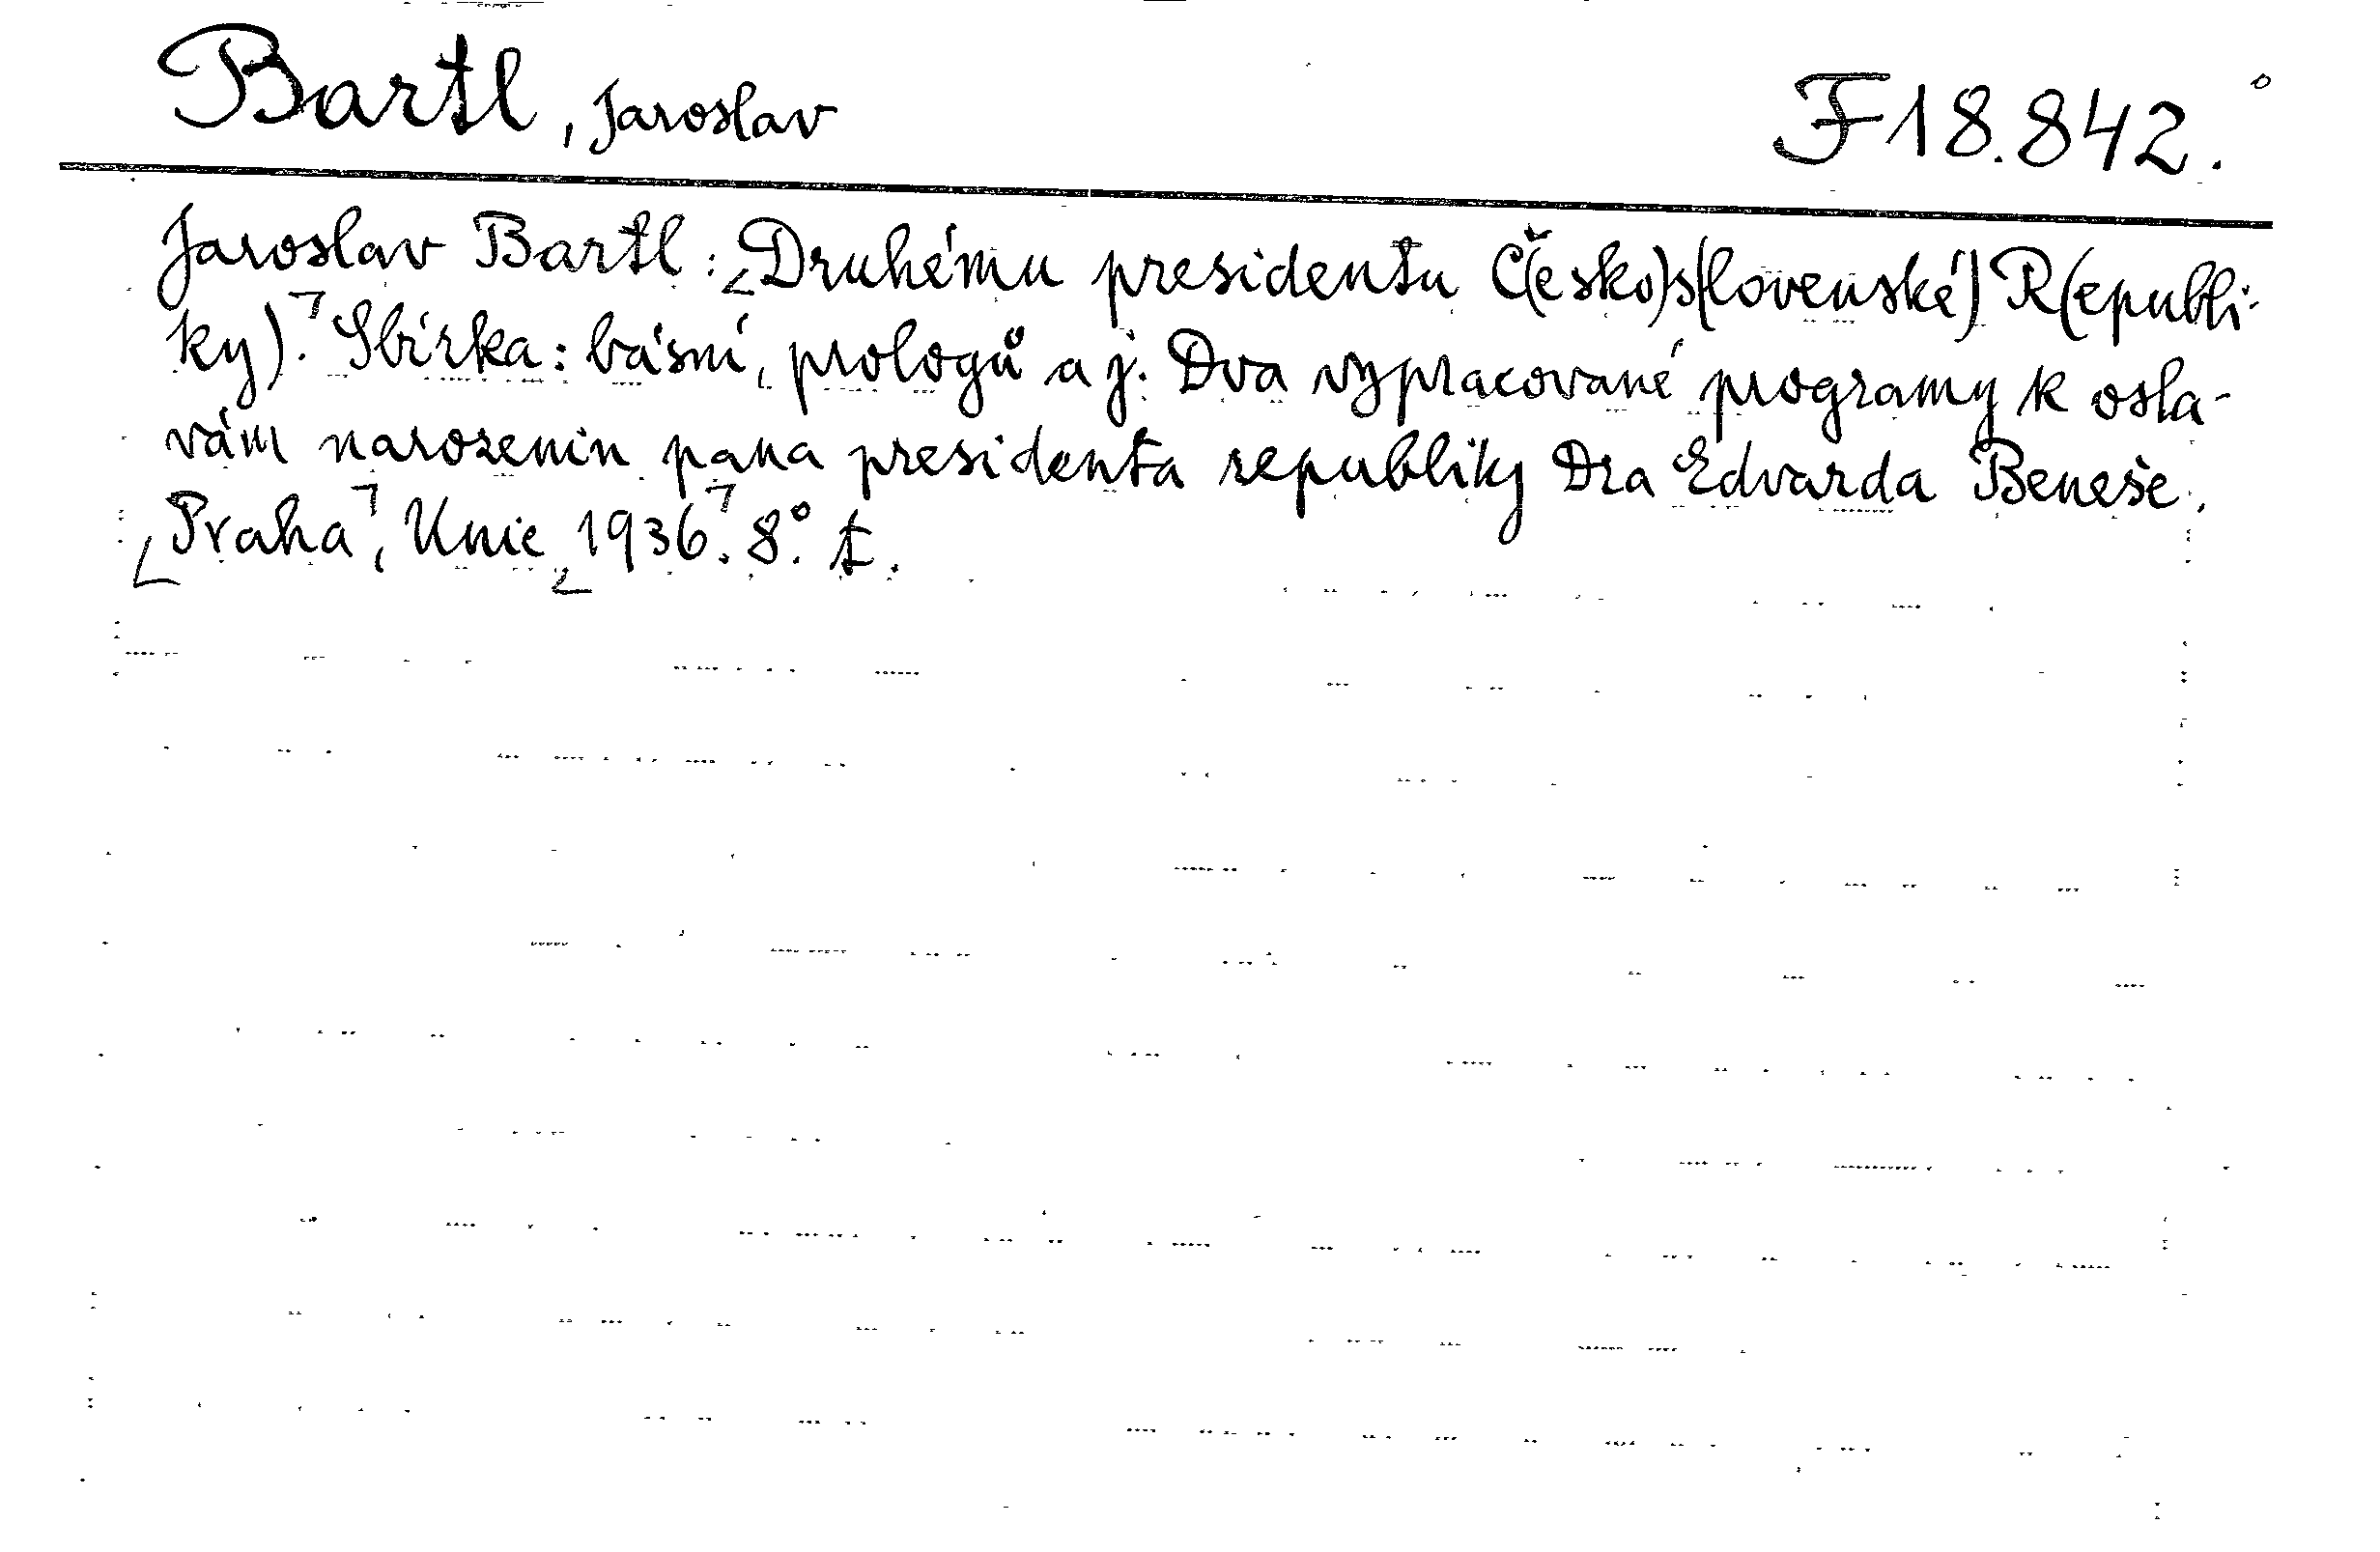 Bartl, Jaroslav F 18.842.
Jaroslav Bartl: [Druhému presidentu Č(esko)s(lovenské) R(epubli-
ky).] Sbírka: básní, prologů a j. Dva vypracované programy k osla-
vám narozenin pana presidenta republiky Dra Edvarda Beneše.
[Praha], Unie [1936]. 8°. t.